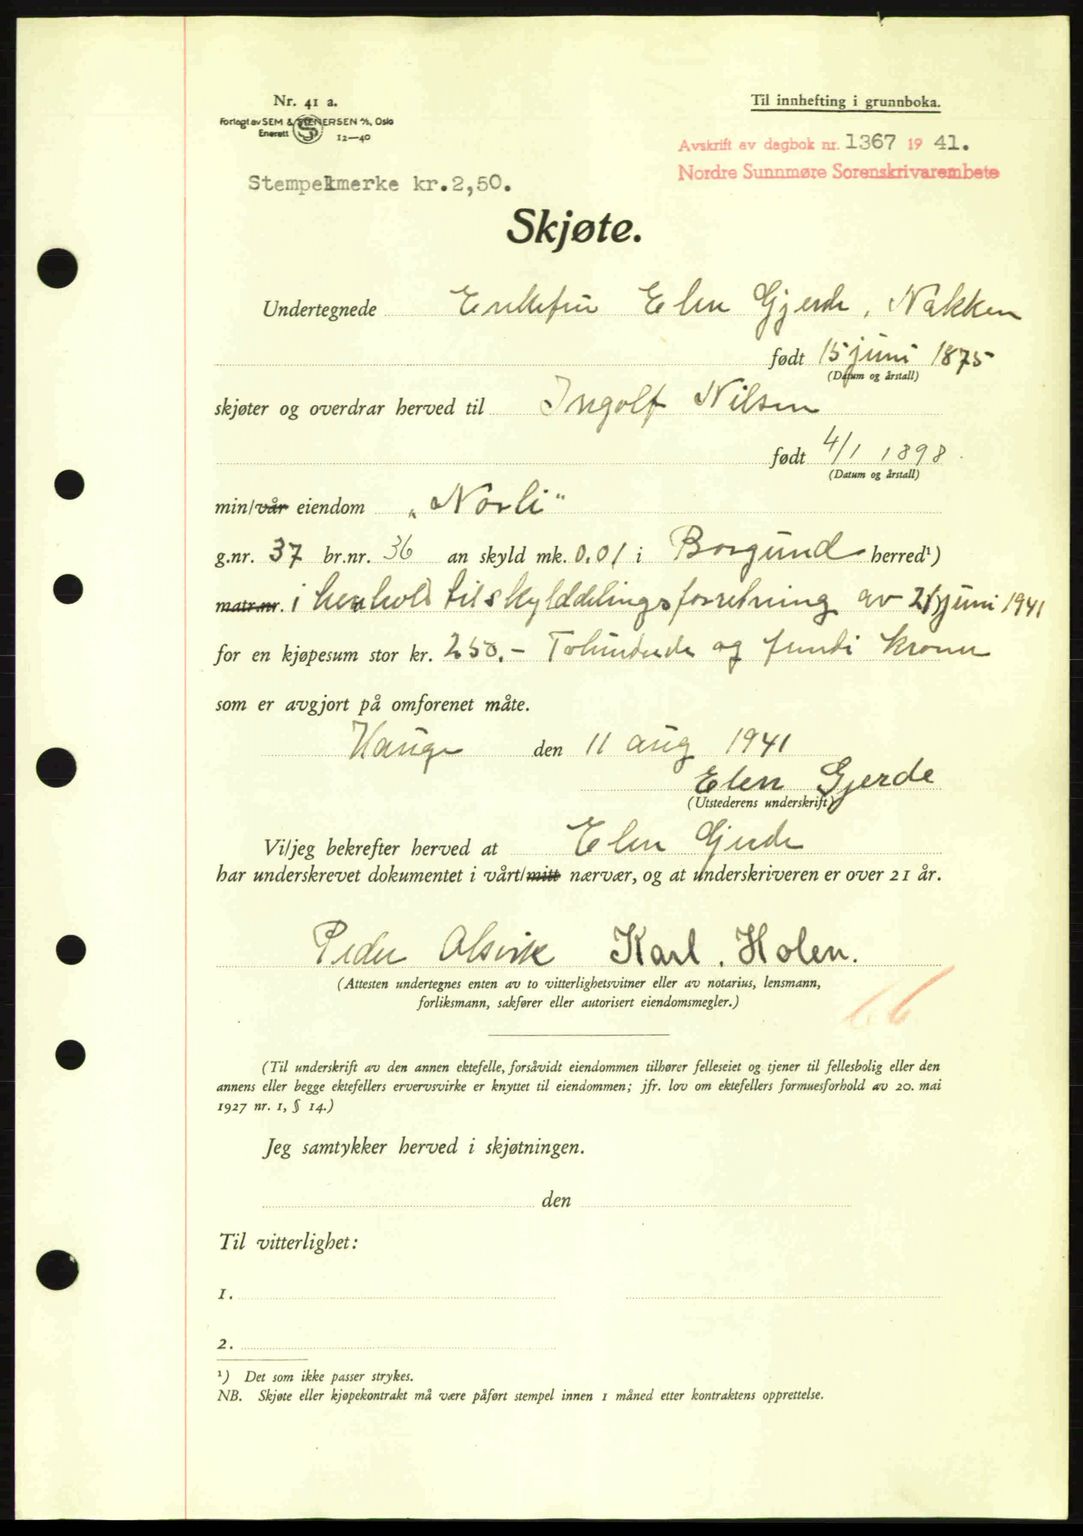 Nr. 41 a.
Forlagt av SEM & STENERSEN A/S, Oslo
Enerett 12—40
Til innhefting i grunnboka.
Avskrift av dagbok nr. 1367 19 41.
Nordre Sunnmøre Sorenskrivarembete
Stempelmerke kr. 2,50.
Skjøte.
Undertegnede Enkefru Elen Gjerde, Nakken
født 15 juni 1875
(Datum og årstall)
skjøter og overdrar herved til Ingolf Nilsen
født 4/1 1898
(Datum og årstall)
min/vår eiendom „Norli“
g.nr. 37 br.nr. 36 an skyld mk. 0,01 i Borgund herred¹)
matr.nr. i henhold til skylddelingsforretning av 21 juni 1941
for en kjøpesum stor kr. 250.- Tohundrede og femti kroner
som er avgjort på omforenet måte.
Hauge den 11 aug 1941
Elen Gjerde
(Utstederens underskrift)
Vi/jeg bekrefter herved at Elen Gjerde
har underskrevet dokumentet i vårt/mitt nærvær, og at underskriveren er over 21 år.
Peder Alsvik Karl. Holen.
(Attesten undertegnes enten av to vitterlighetsvitner eller av notarius, lensmann,
forliksmann, sakfører eller autorisert eiendomsmegler.)
(Til underskrift av den annen ektefelle, forsåvidt eiendommen tilhører felleseiet og tjener til fellesbolig eller den
annens eller begge ektefellers ervervsvirke er knyttet til eiendommen; jfr. lov om ektefellers formuesforhold av 20. mai
1927 nr. 1, § 14.)
Jeg samtykker herved i skjøtningen.
den
Til vitterlighet:
1.
2.
¹) Det som ikke passer strykes.
NB. Skjøte eller kjøpekontrakt må være påført stempel innen 1 måned etter kontraktens opprettelse.